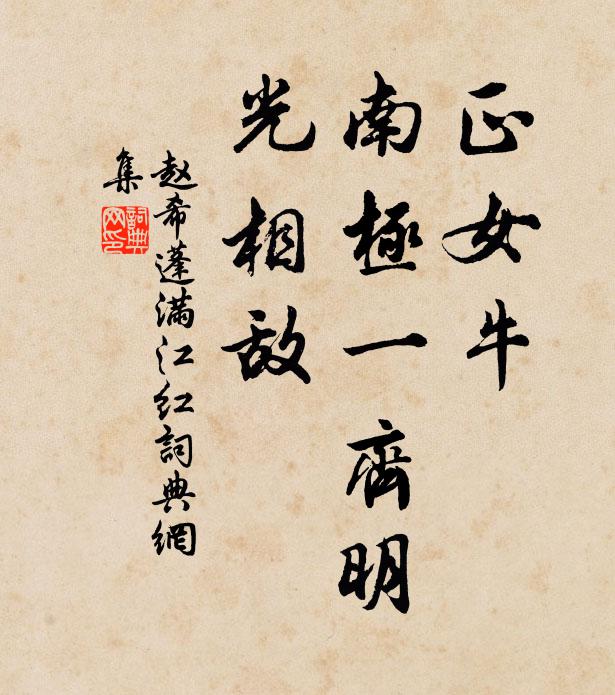 正女牛
南極一齊明
光相敌
赵希蓬满江红詞典網
集
詞典
网印